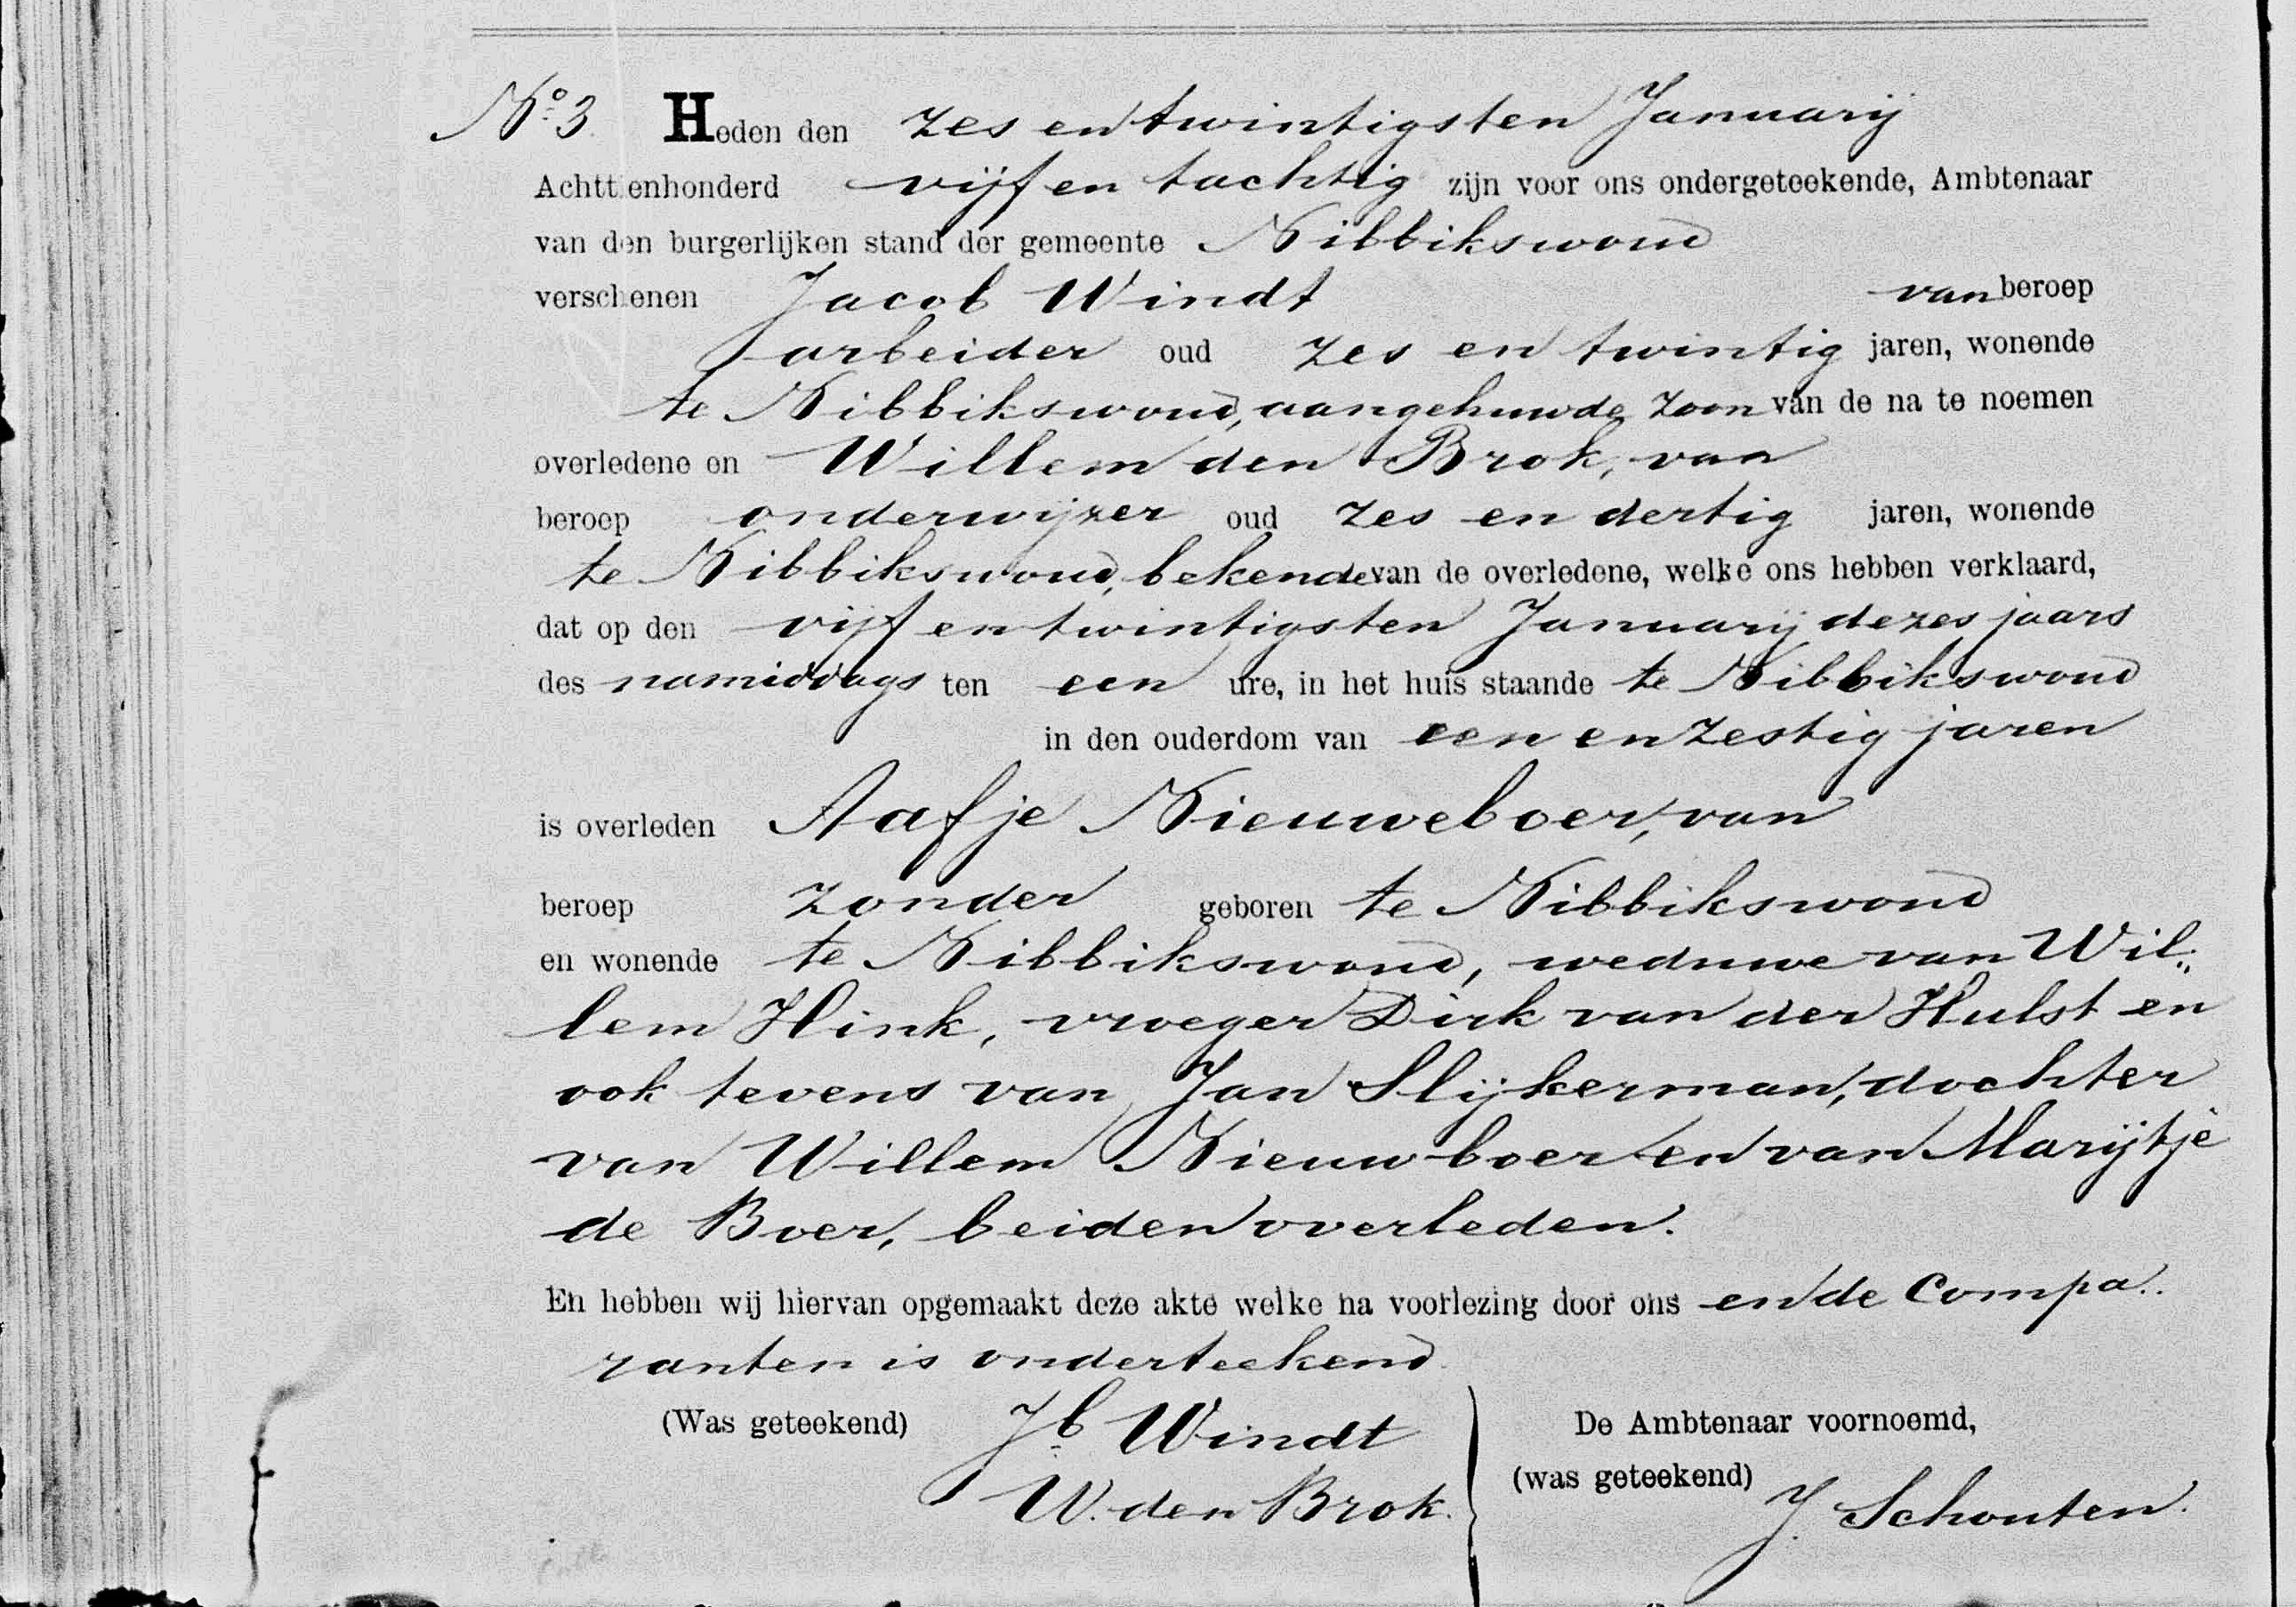 No. 3. Heden den zes en twintigsten Januarij
Achttienhonderd vijf en tachtig zijn voor ons ondergeteekende, Ambtenaar
van den burgerlijken stand der gemeente Nibbikswoud
verschenen Jacob Windt van beroep
arbeider oud zes en twintig jaren, wonende
te Nibbikswoud, aangehuwde zoon van de na te noemen
overledene en Willem den Brok, van
beroep onderwijzer oud zes en dertig jaren, wonende
te Nibbikswoud, bekende van de overledene, welke ons hebben verklaard,
dat op den vijf en twintigsten Januarij dezes jaars
des namiddags ten een ure, in het huis staande te Nibbikswoud
in den ouderdom van een en zestig jaren
is overleden Aafje Nieuweboer, van
beroep zonder geboren te Nibbikswoud
en wonende te Nibbikswoud, weduwe van Wil„
lem Hink, vroeger Dirk van der Hulst en
ook tevens van Jan Slijkerman, dochter
van Willem Nieuwboer en van Marijtje
de Boer, beiden overleden.
En hebben wij hiervan opgemaakt deze akte welke na voorlezing door ons en de Compa..
ranten is onderteekend.
(Was geteekend) Jb. Windt De Ambtenaar voornoemd,
W. den Brok. (was geteekend) J. Schouten.